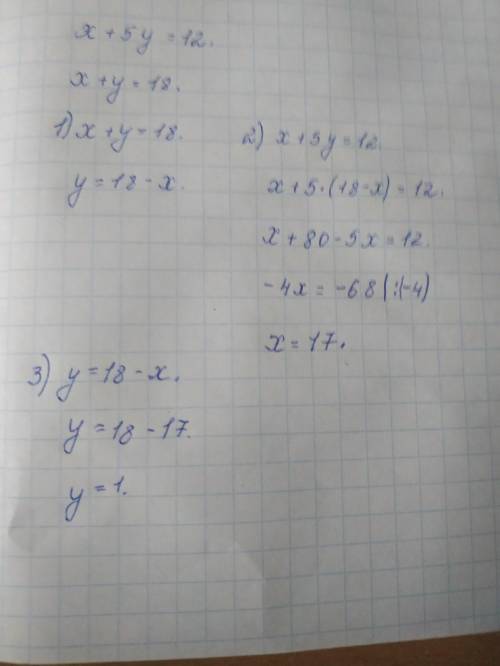 x + 5y = 12.
x + y = 18.
1) x + y = 18.
y = 18 - x.
2) x + 5y = 12.
x + 5 · (18 - x) = 12.
x + 80 - 5x = 12.
-4x = -68 | :(-4)
x = 17.
3) y = 18 - x.
y = 18 - 17.
y = 1.